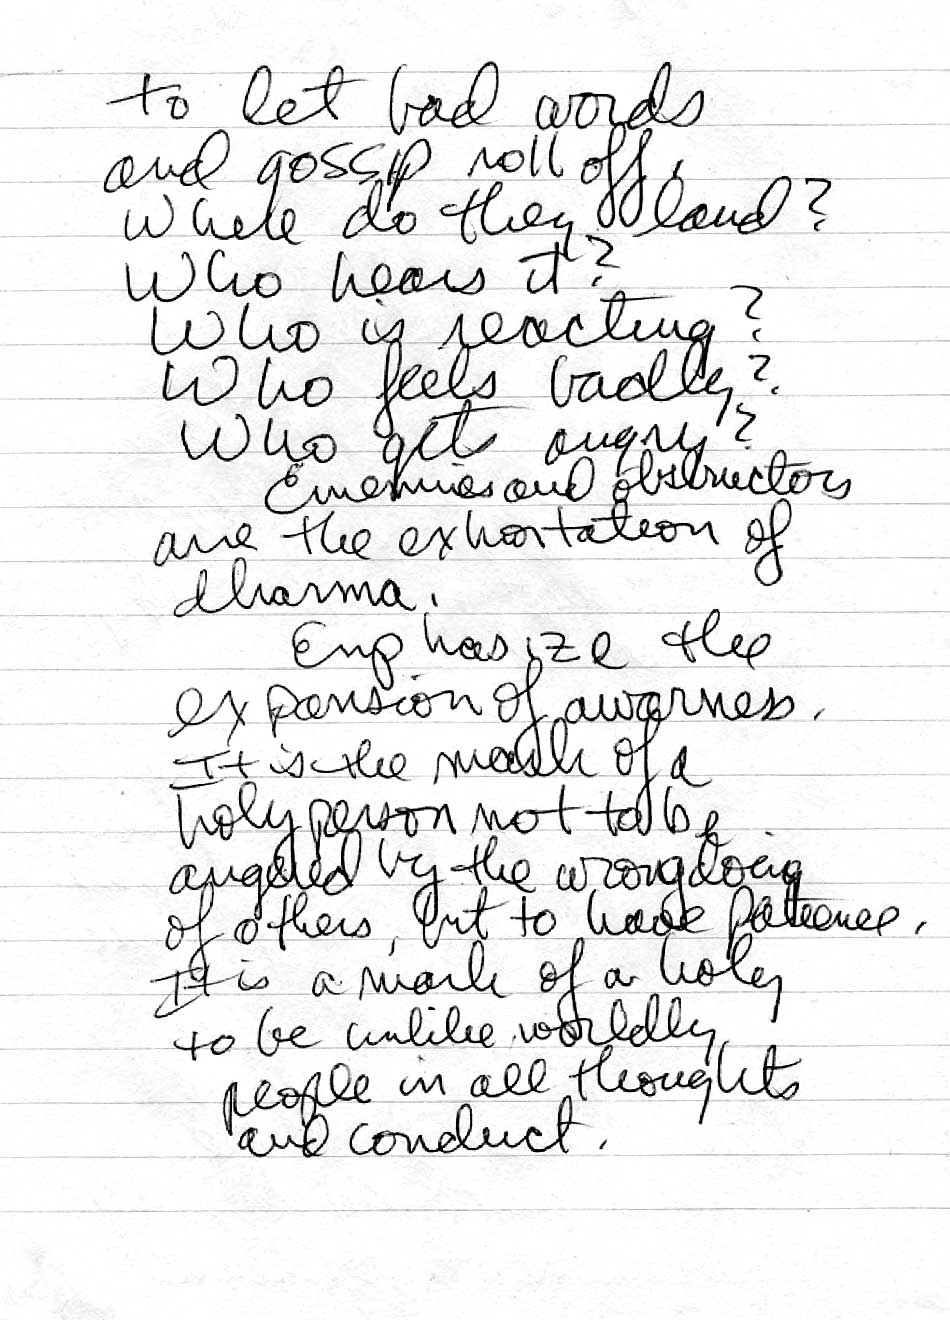 to let bad words
and gossip roll off,
Where do they land?
Who hears it?
Who is reacting?
Who feels badly?
Who gets angry?
Enemies and obstructors
are the exhortation of
dharma.
Emphasize the
expansion of awarness.
It is the mark of a
holy person not to be
angered by the wrongdoing
of others, but to have patience.
It is a mark of a holy
to be unlike worldly
people in all thoughts
and conduct.